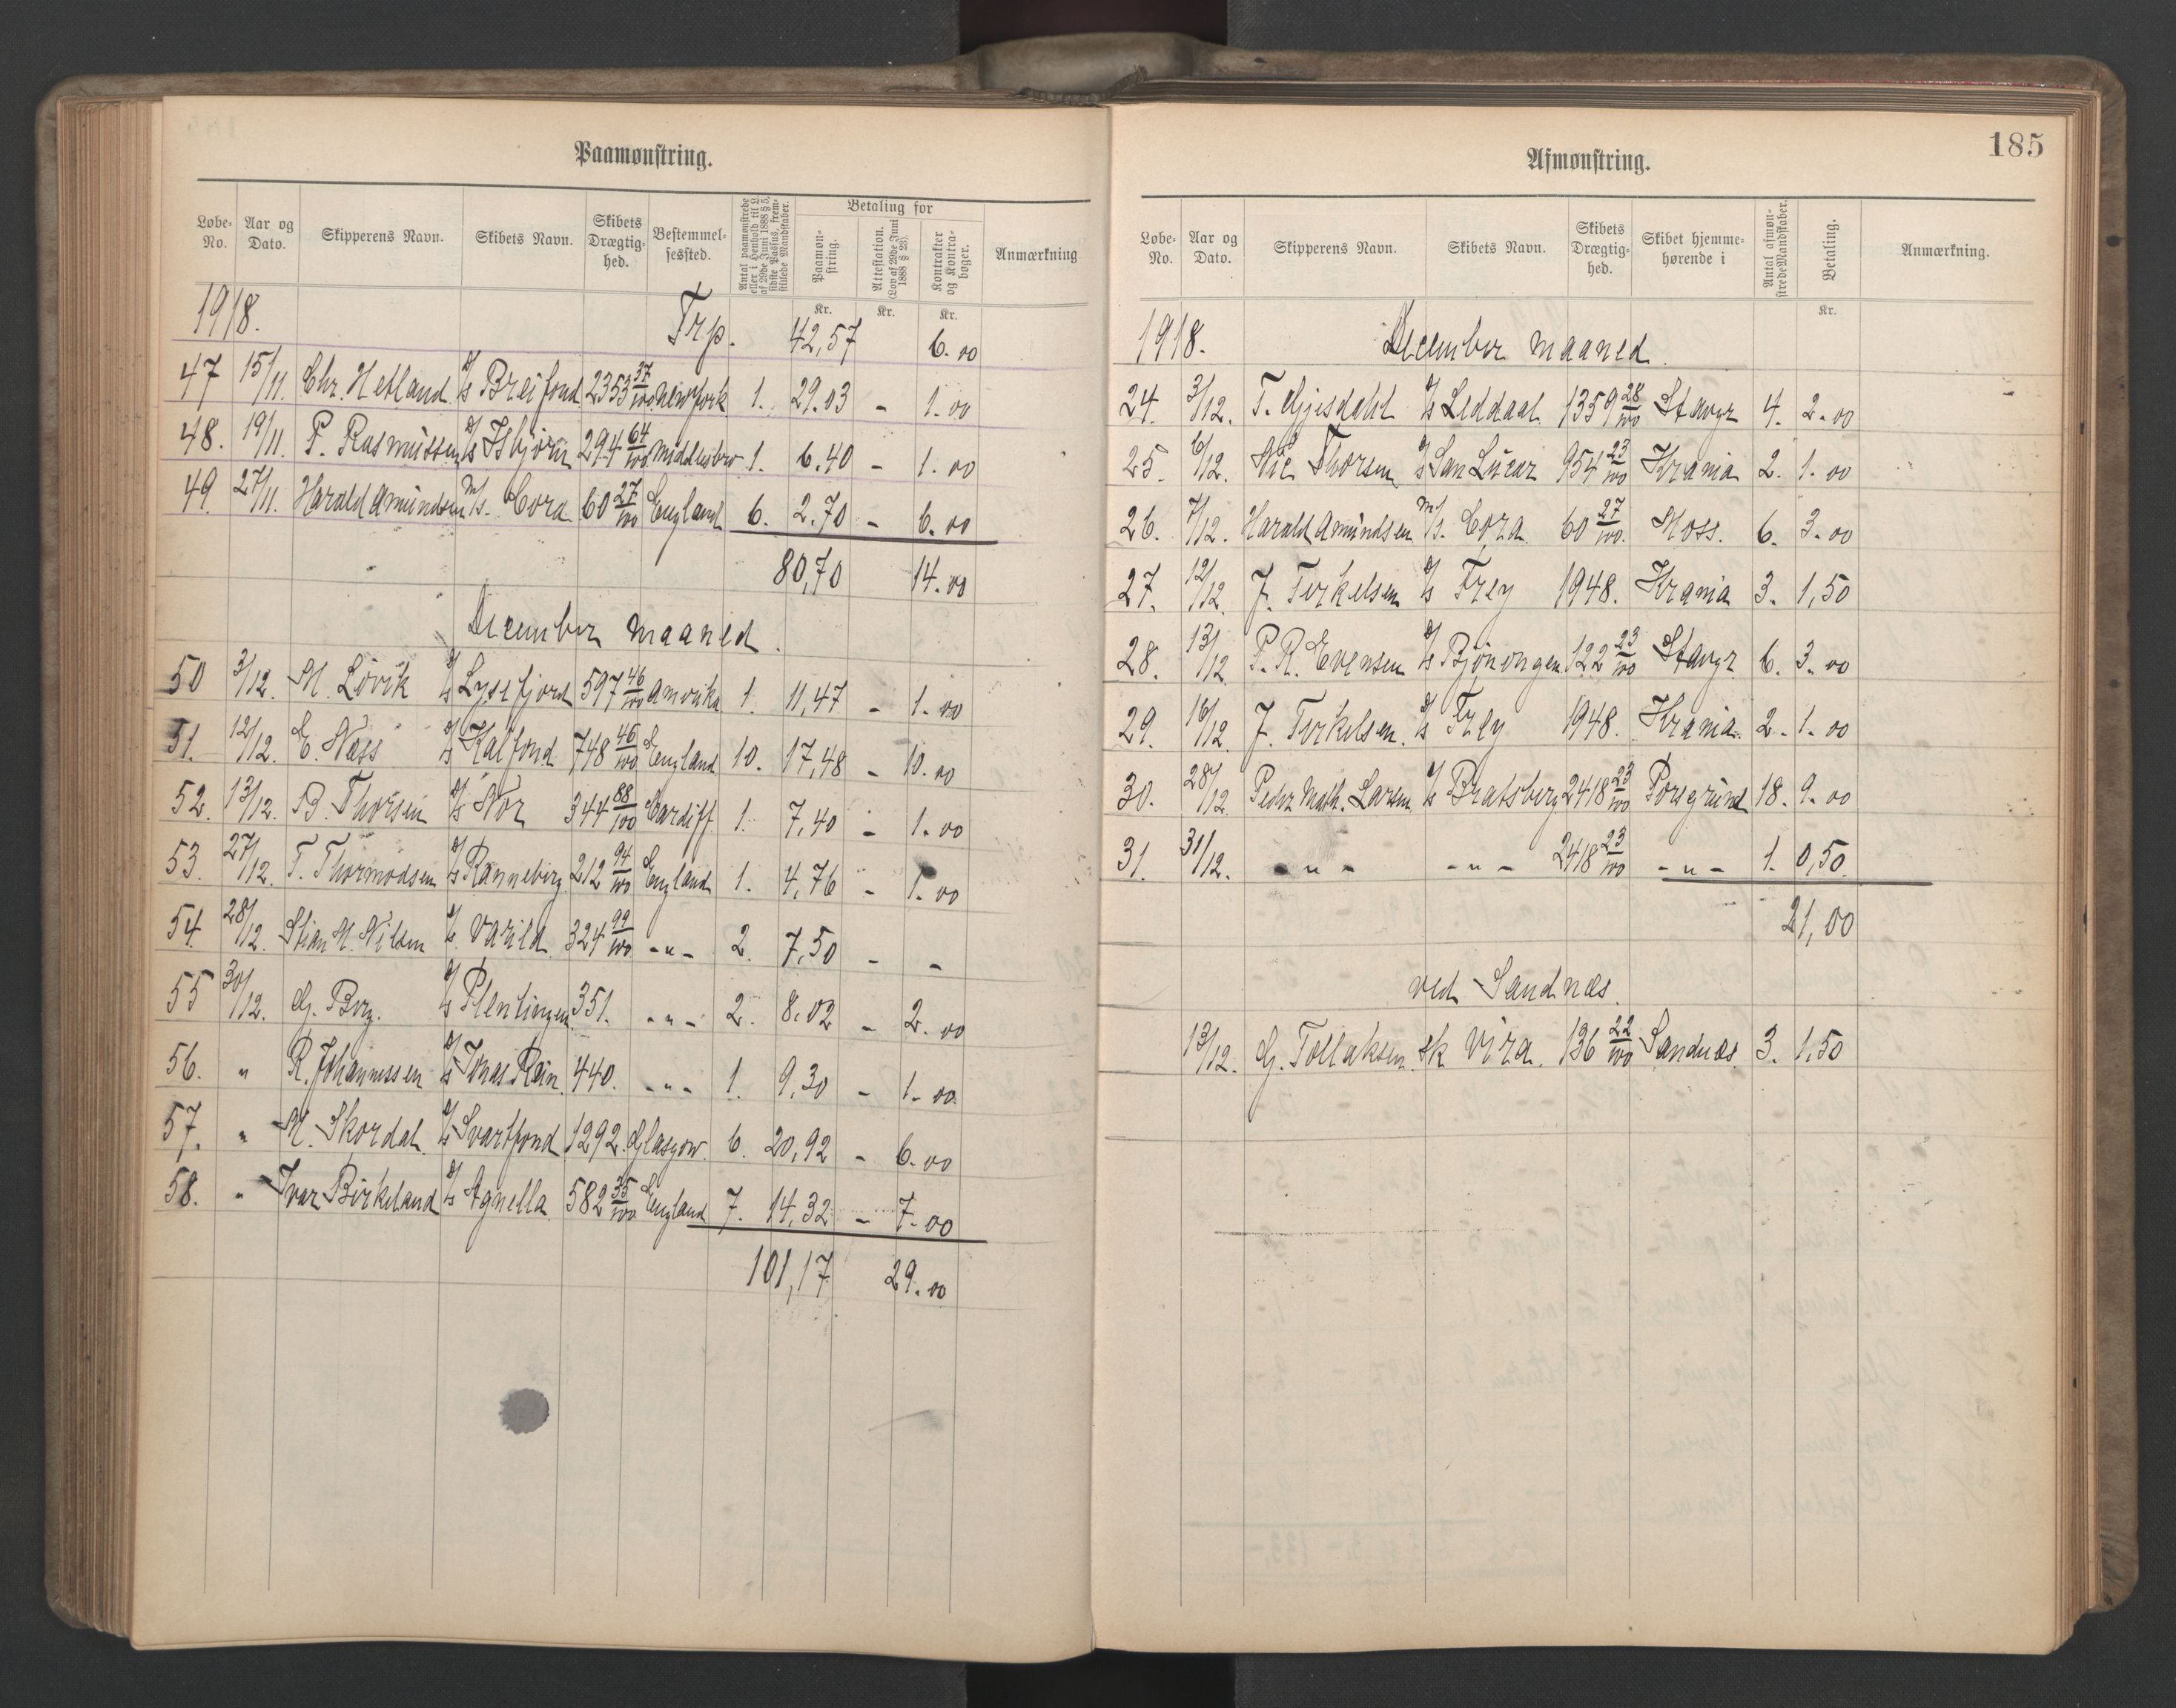 Paamønstring.
Løbe-No. Aar og Dato. Skipperens Navn. Skibets Navn. Skibets Drægtig-hed. Bestemmel-sessted. Antal paamønstrede eller i Henhold til L. af 29de Juni 1888 § 5, sidste Passus, frem-stillede Mandskaber. Betaling for Paamøn-string. Attestation. (Lov af 29de Juni 1888 § 23). Kontrakter og Kontra-bøger. Anmærkning
Kr. Kr. Kr.
1918. Trp. 42,57 6.00
47 15/11. Chr. Hetland s/s Breifond 2353 37/100 Newyork 1. 29.03 - 1.00
48. 19/11. P. Rasmussen s/s Isbjörn 294 64/100 Middlesbro 1. 6.40 - 1.00
49. 27/11. Harald Amundsen m/s. Cora 60 27/100 England 6. 2.70 - 6.00
80,70 14.00
December maaned.
50 3/12. M. Lövik s/s Lysefjord 597 46/100 Amerika 1. 11,47 - 1.00
51. 12/12. E. Næss s/s Kalfond 748 46/100 England 10. 17,48 - 10.00
52. 13/12. B. Thorsen s/s Nor 344 88/100 Cardiff 1. 7,40 - 1.00
53. 27/12. T. Thormodsen s/s Ranneberg 212 94/100 England 1. 4,76 - 1.00
54. 28/12. Stian M. Nilsen s/s. Varild 324 99/100 -"- 2. 7,50 - -
55 30/12. G. Berg. s/s Plentingen 351. -"- 2. 8.02 - 2.00
56. " R. Johannssen s/s Jonas Rein. 440. -"- 1. 9,30 - 1.00.
57. " M. Skordal. s/s Svartfond 1292. Glasgow. 6. 20,92 - 6.00
58. " Ivar Birkeland s/s Agnella. 582 35/100 England 7. 14,32 - 7.00
101,17 29.00
185
Afmønstring.
Løbe-No. Aar og Dato. Skipperens Navn. Skibets Navn. Skibets Drægtig-hed. Skibet hjemme-hørende i Antal afmøn-strede Mandskaber. Betaling. Anmærkning.
Kr.
1918. December maaned.
24. 3/12. T. Gjesdahl s/s Leddaal 1359 28/100 Stavgr 4. 2.00
25. 6/12. Nic Thorsen s/s San Lucar 954 23/100 Krania 2. 1.00
26. 7/12. Harald Amundsen m/s. Cora. 60 27/100. Moss. 6. 3.00
27. 12/12. J. Terkelsen s/s Frey 1948. Krania 3. 1,50
28. 13/12 P. R. Evensen s/s Bjönongen 122 23/100 Stavgr 6. 3.00
29. 16/12 J. Terkelsen. s/s Frey 1948. Krania. 2. 1.00
30. 28/12 Peder Math. Larsen s/s Bratsberg 2418 23/100 Porsgrund 18. 9.00
31. 31/12. -"- -"- 2418 23/100 -"- 1. 0,50.
21,00
ved Sandnæs.
13/12. G. Tollaksen. sk Vira. 136 22/100 Sandnæs. 3. 1,50